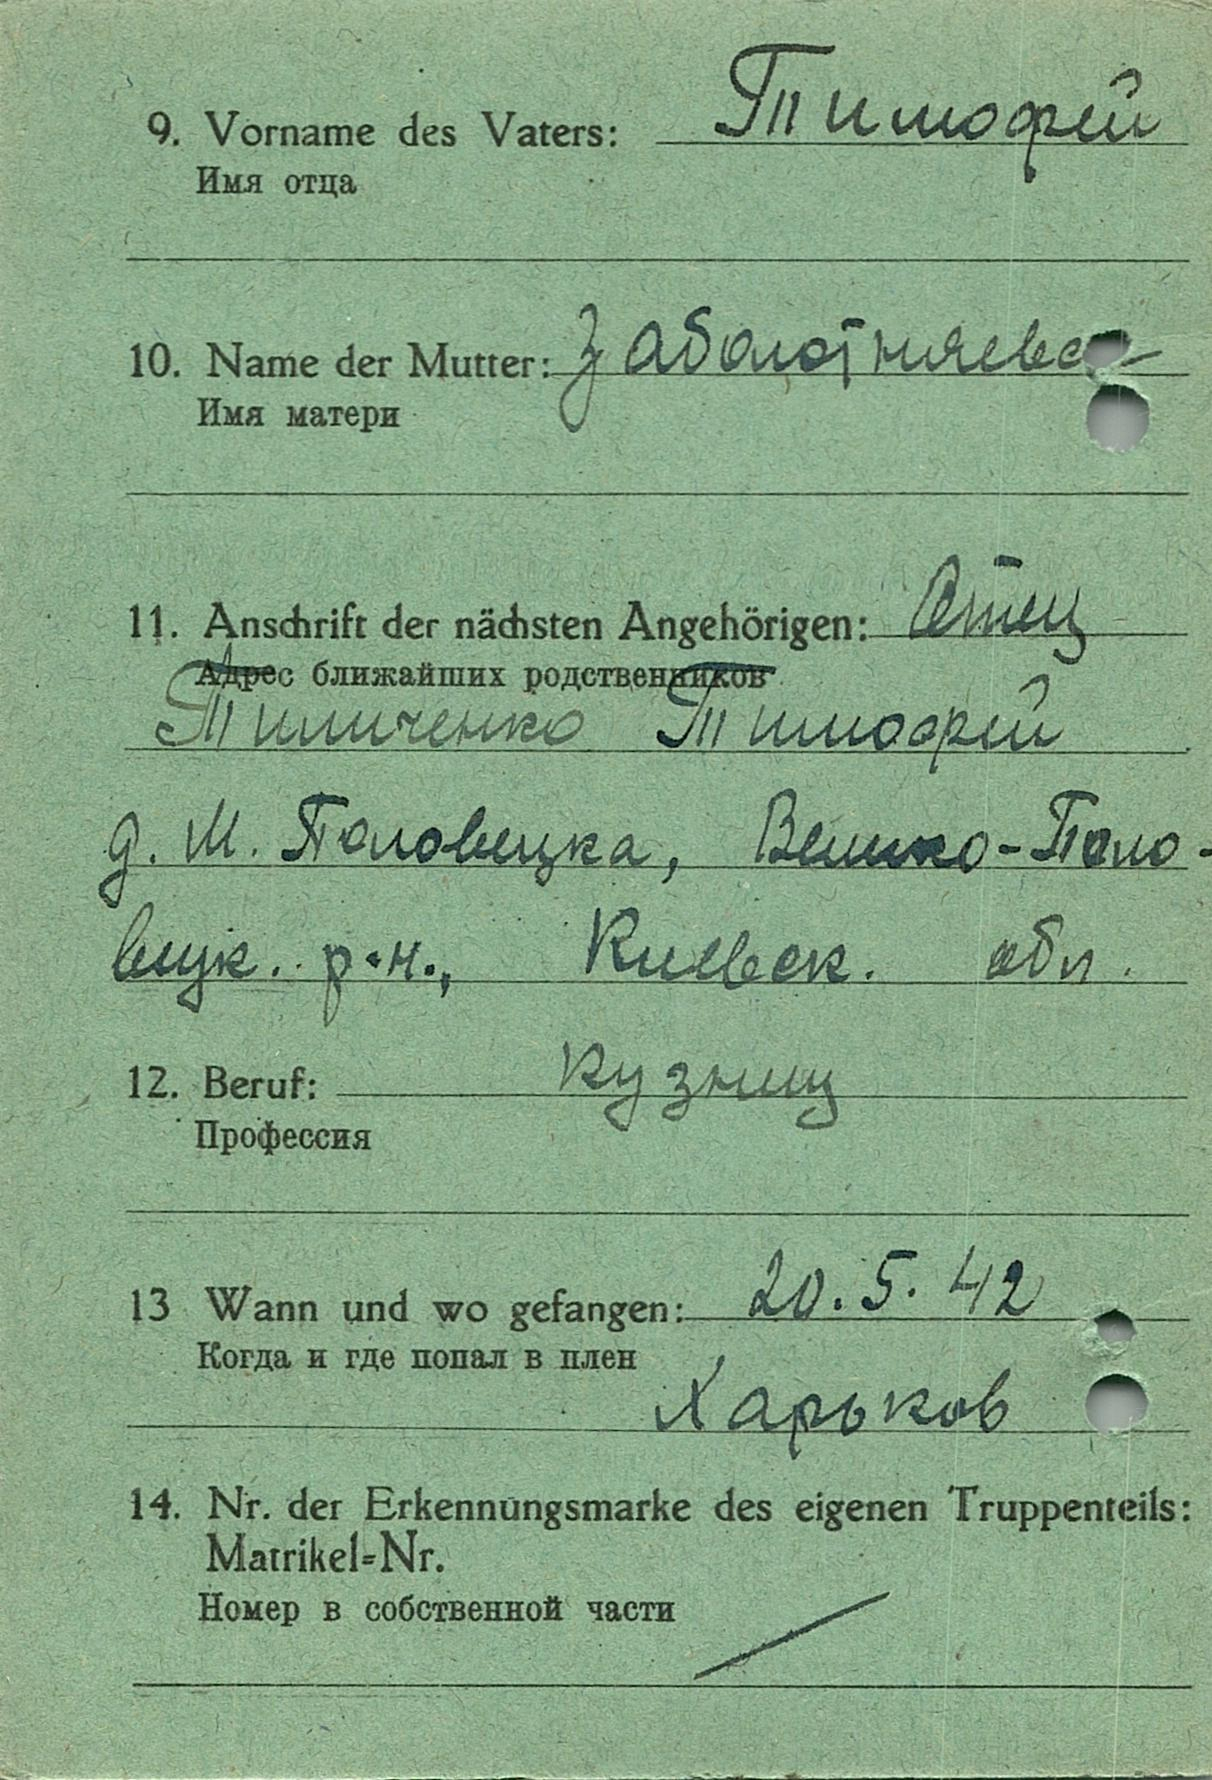 9. Vorname des Vaters: Тимофей
Имя отца
10. Name der Mutter: Заболотняева
Имя матери
11. Anschrift der nächsten Angehörigen: Отец
Адрес ближайших родственников
Тимченко Тимофей
д. М. Половецка, Велико-Поло-
вецк. р-н., Киевск. обл.
12. Beruf: Кузнец
Профессия
13 Wann und wo gefangen: 20.5.42
Когда и где попал в плен
Харьков
14. Nr. der Erkennungsmarke des eigenen Truppenteils:
Matrikel=Nr.
Номер в собственной части